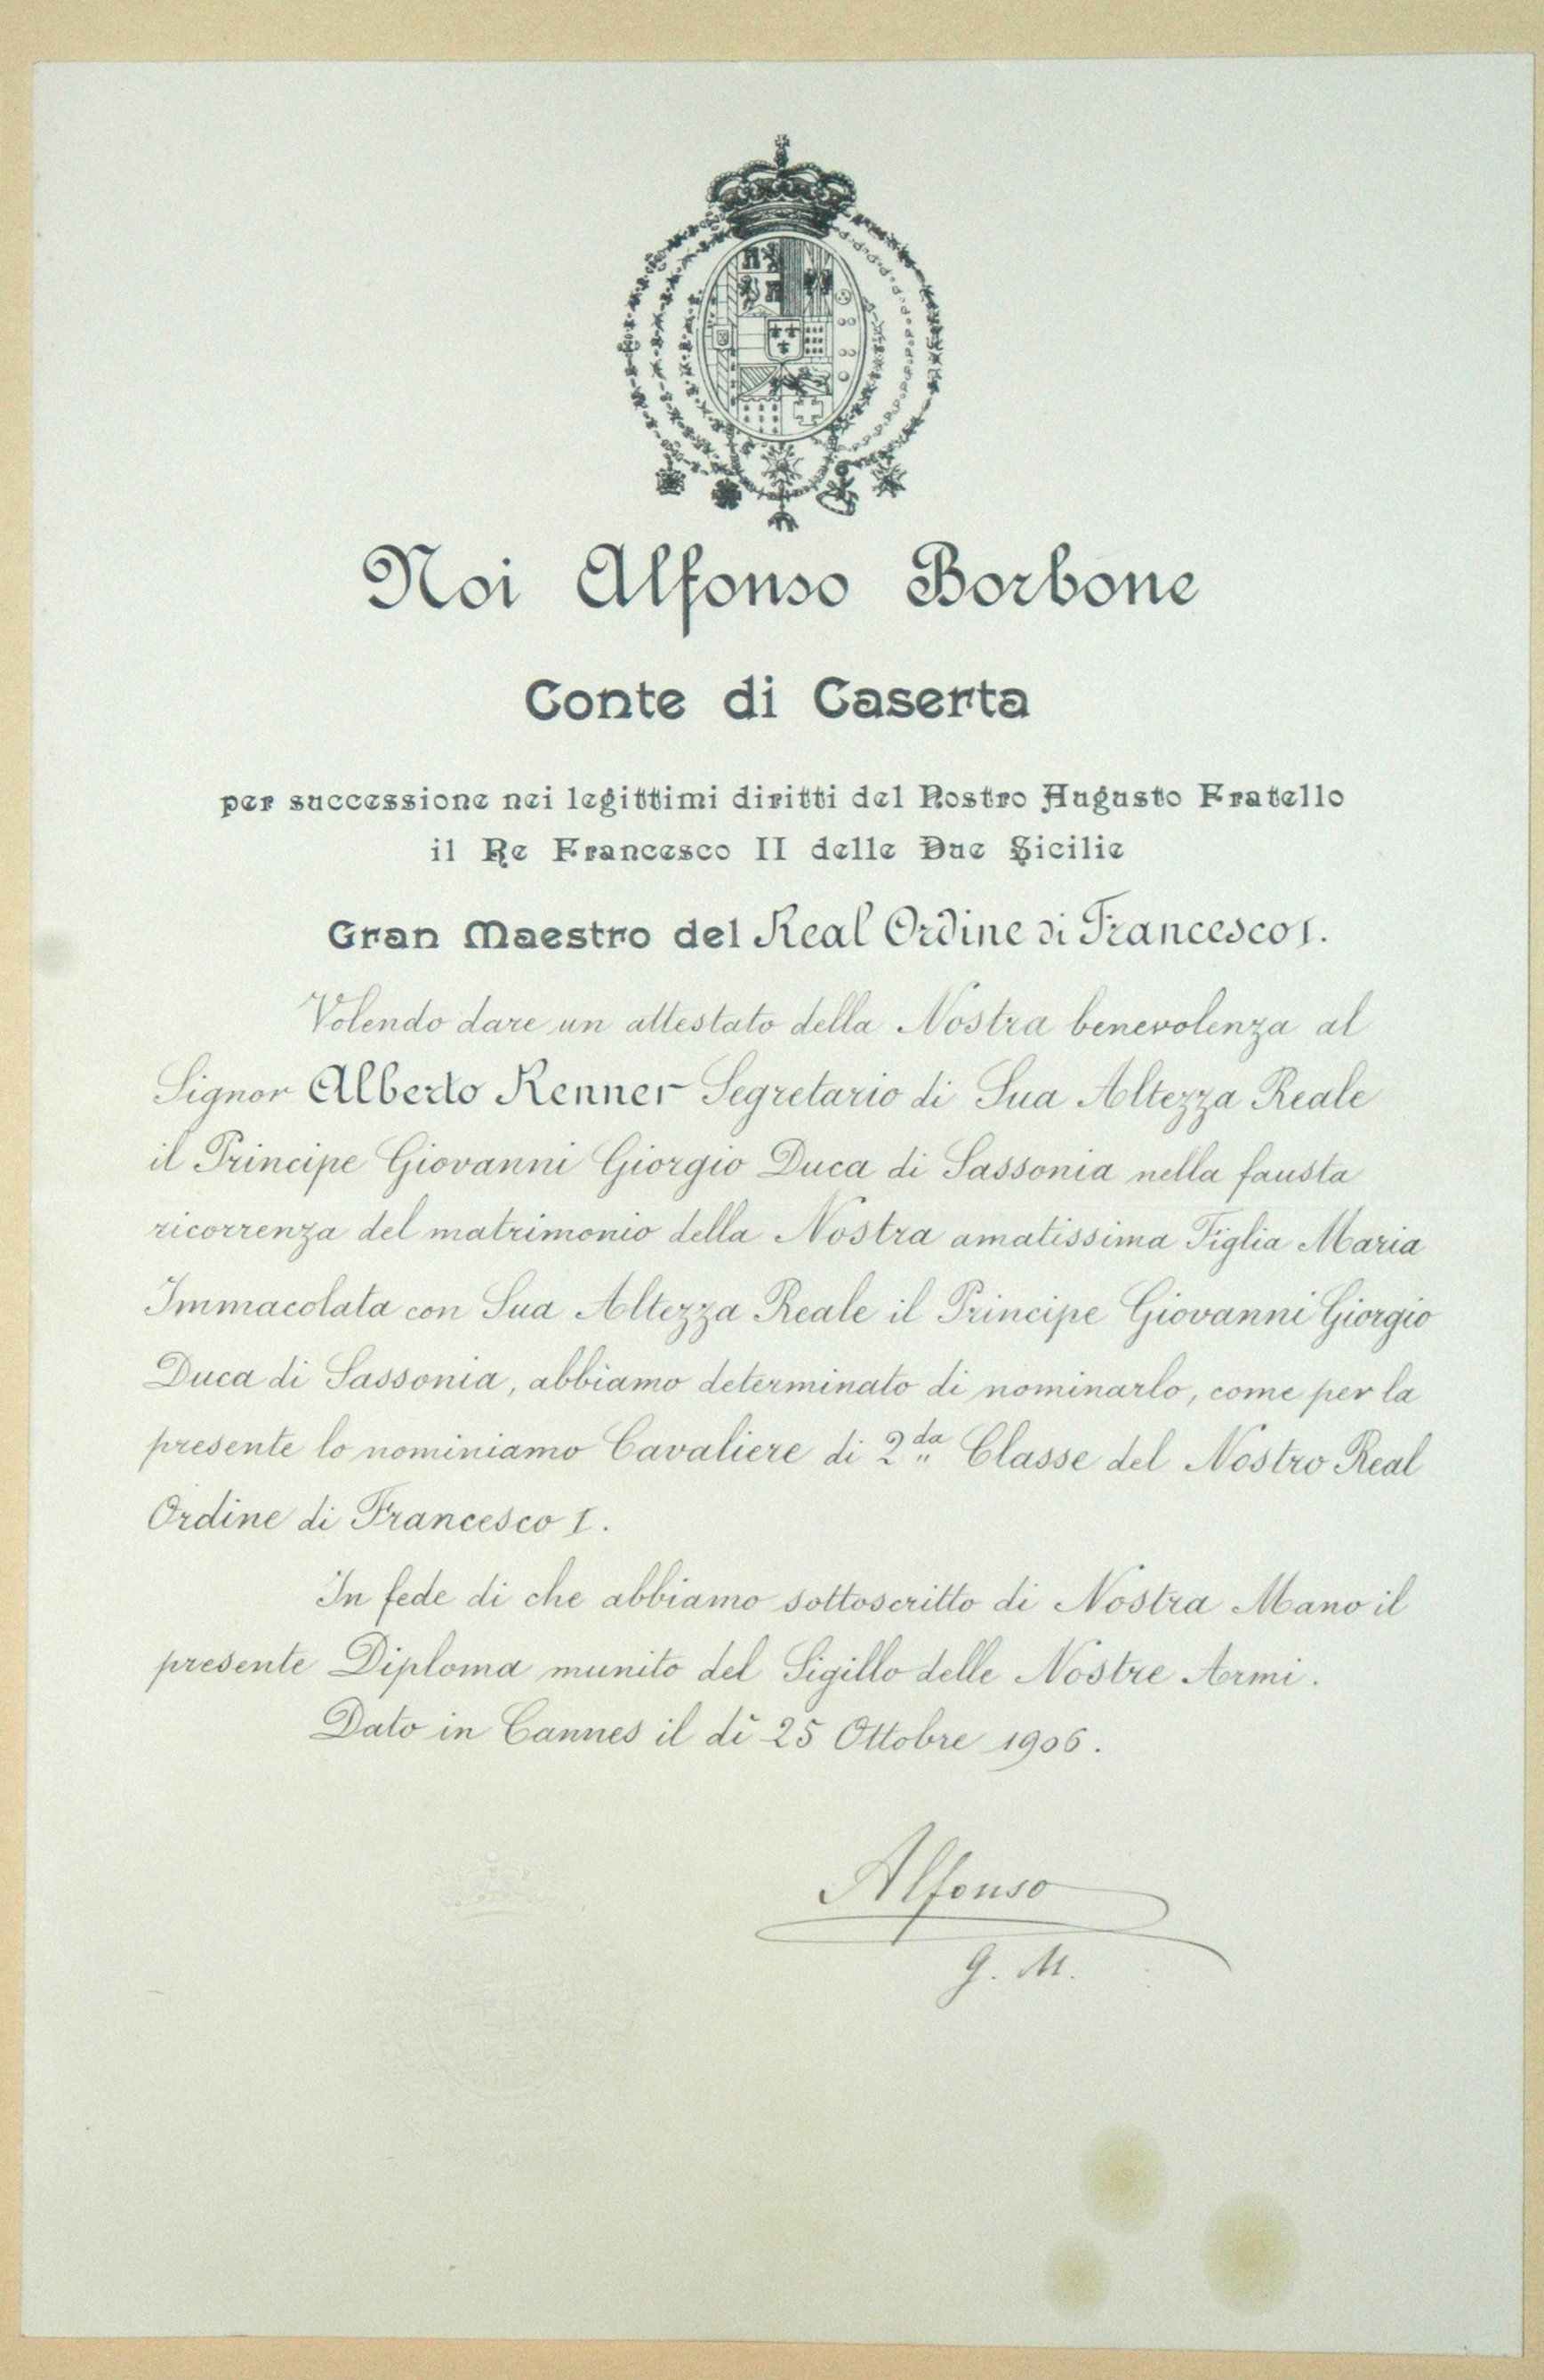 Noi Alfonso Borbone
Conte di Caserta
per successione nei legittimi diritti del Nostro Augusto Fratello
il Re Francesco II delle Due Sicilie
Gran Maestro del Real Ordine di Francesco I.
Volendo dare un attestato della Nostra benevolenza al
Signor Alberto Renner Segretario di Sua Altezza Reale
il Principe Giovanni Giorgio Duca di Sassonia nella fausta
ricorrenza del matrimonio della Nostra amatissima Figlia Maria
Immacolata con Sua Altezza Reale il Principe Giovanni Giorgio
Duca di Sassonia, abbiamo determinato di nominarlo, come per la
presente lo nominiamo Cavaliere di 2da Classe del Nostro Real
Ordine di Francesco I.
In fede di che abbiamo sottoscritto di Nostra Mano il
presente Diploma munito del Sigillo delle Nostre Armi.
Dato in Cannes il dì 25 Ottobre 1906.
Alfonso
G. M.